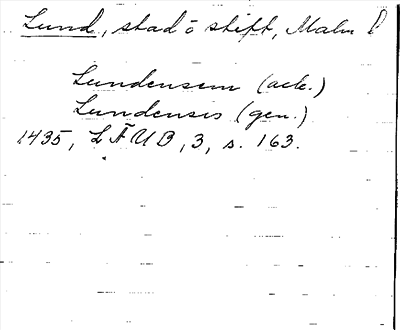 Lund, stad o stift, Malm l
Lundensem (ack.)
Lundensis (gen.)
1435, LÄUB, 3, s. 163.